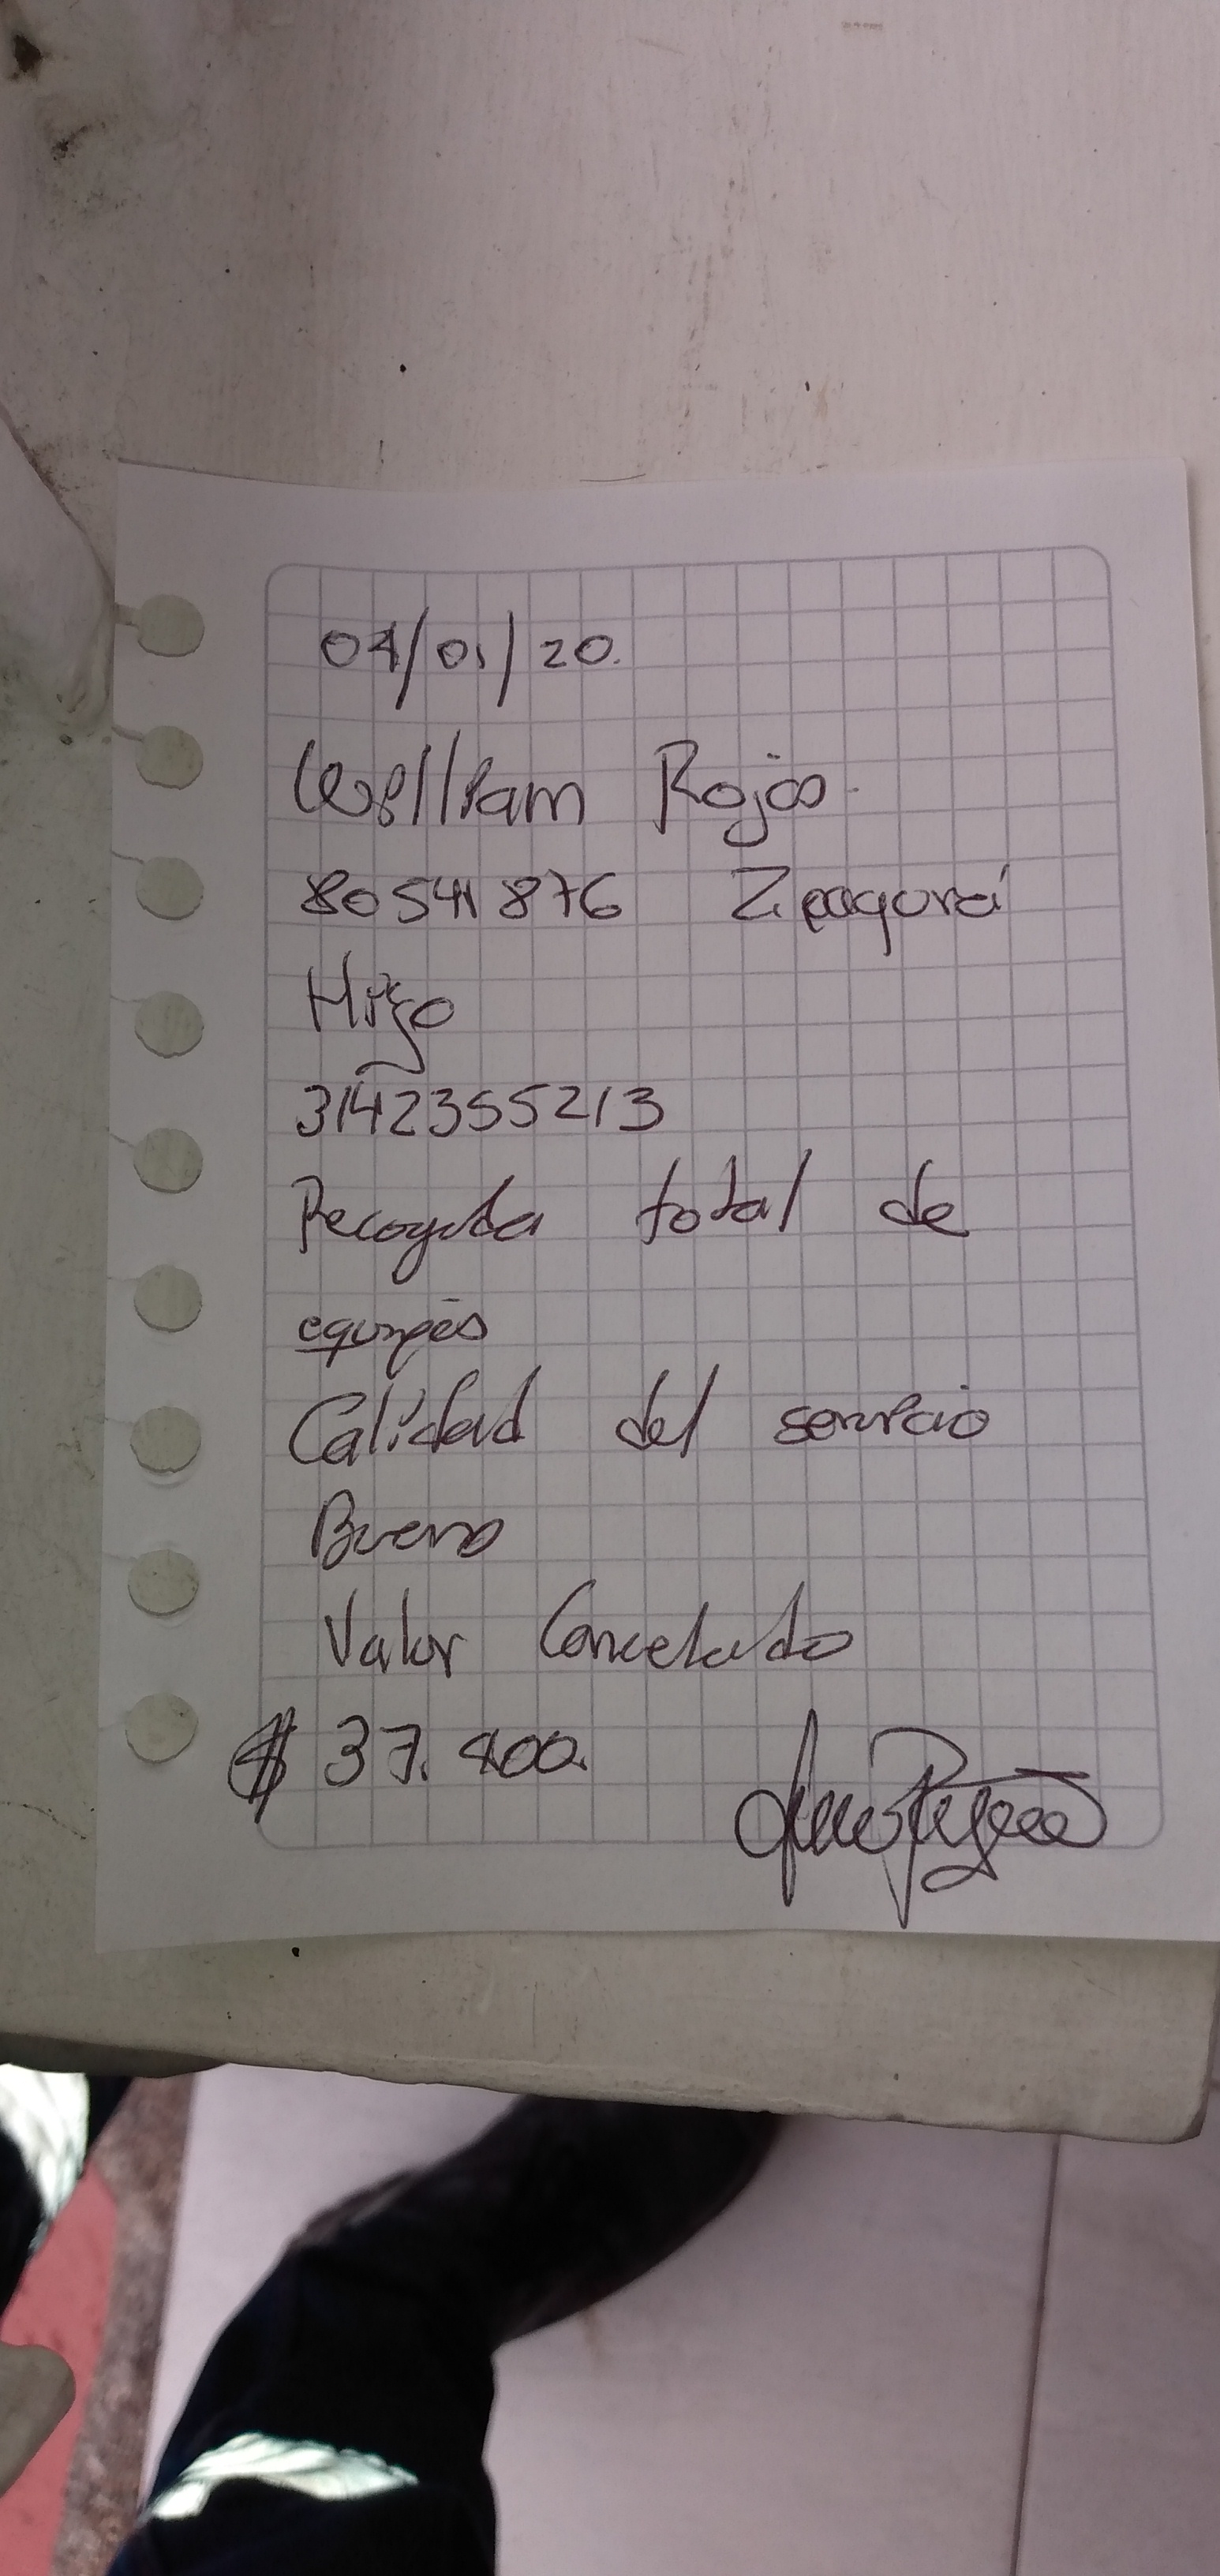 04/01/20.
William Rojas.
80541876 Zipaquirá
Hijo
3142355213
Recogida total de
equipos
Calidad del servicio
Bueno
Valor Cancelado
$ 37.400.